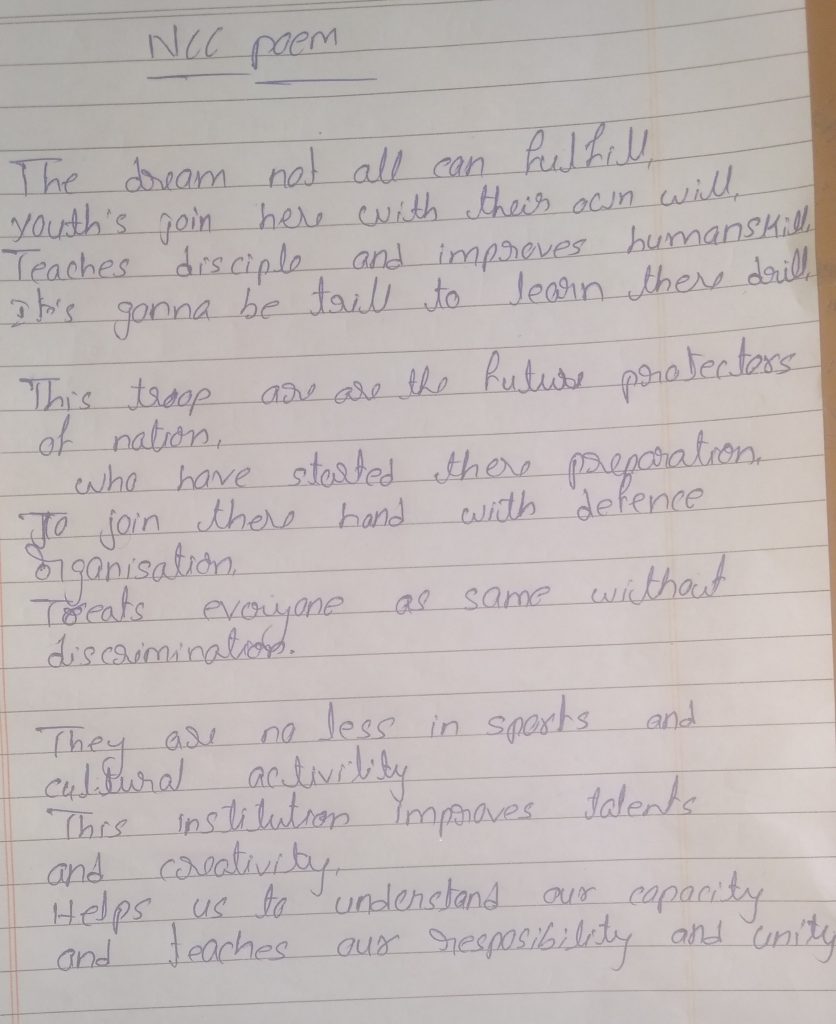 NCC poem
The dream not all can fulfill,
youth's join here with their own will,
Teaches disciple and improves humanskill,
It's gonna be trill to learn there drill,
This troop are are the future protectors
of nation,
who have started there preparation,
To join there hand with defence
organisation,
Treats everyone as same without
discrimination.
They are no less in sports and
cultural activility
This institution improves talents
and creativity,
Helps us to understand our capacity
and teaches our resposibility and unity